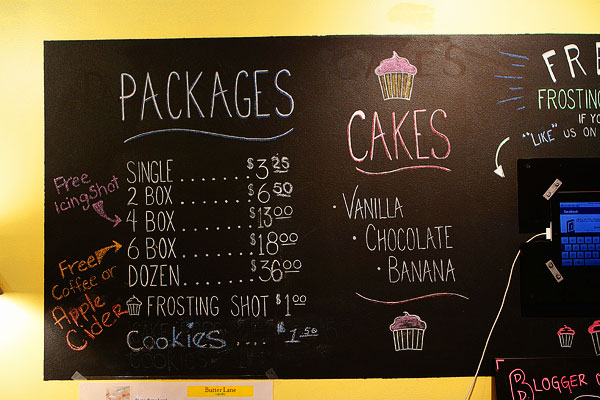 PACKAGES
SINGLE ........ $3.25
2 BOX ........ $6.50
4 BOX ........ $13.00
6 BOX ........ $18.00
DOZEN ..... $36.00
FROSTING SHOT $1.00
Cookies .... $1.50
Free
Icing Shot
Free
Coffee or
Apple
Cider
CAKES
· VANILLA
· CHOCOLATE
· BANANA
FRE
FROSTING
IF YO
"LIKE" US ON
facebook
BLOGGER
Butter Lane